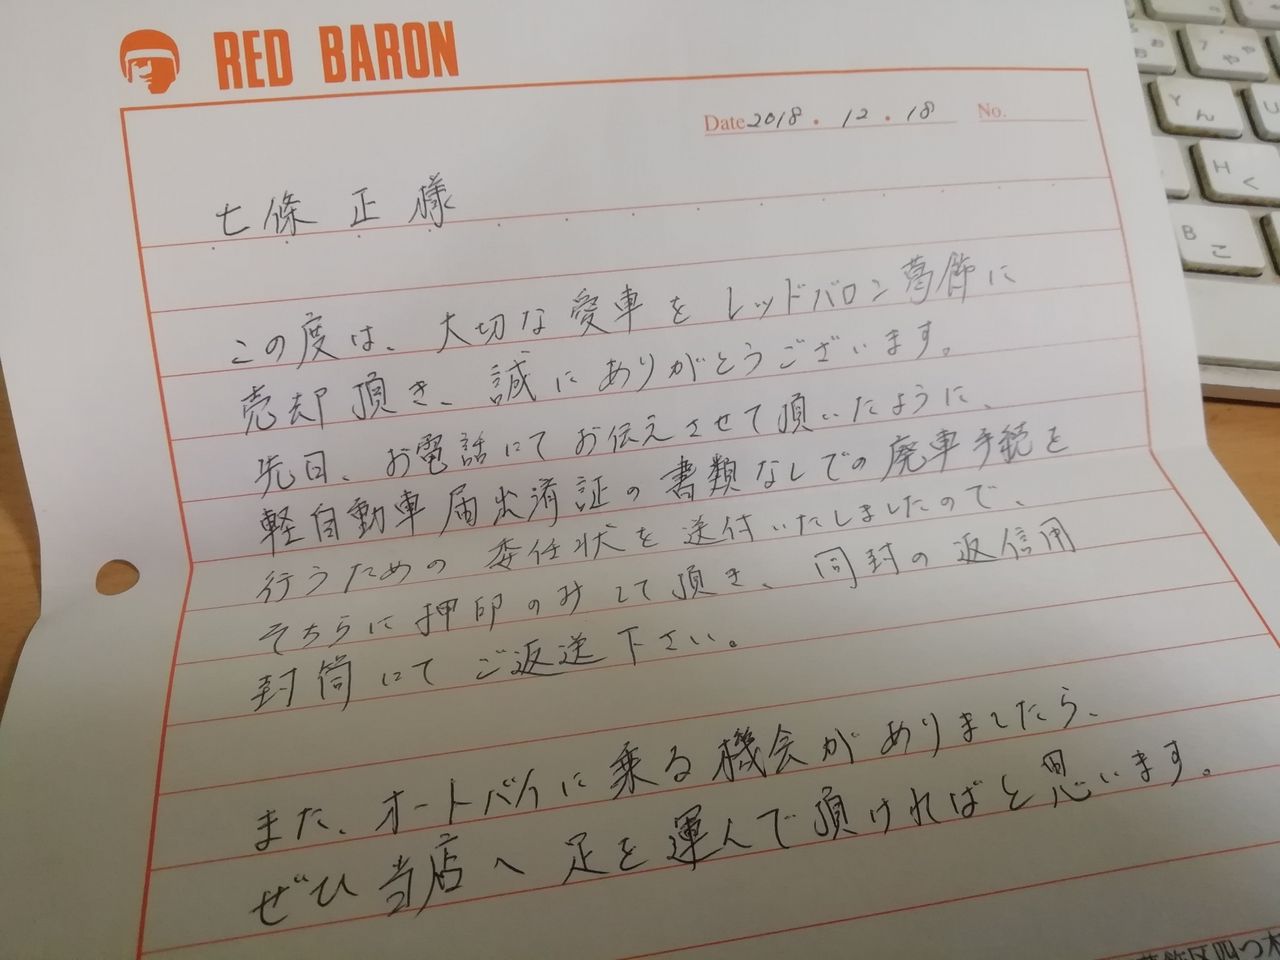 RED BARON
Date 2018 . 12 . 18 No.
七條 正 様
この度は、大切な愛車をレッドバロン葛飾に
売却頂き、誠にありがとうございます。
先日、お電話にてお伝えさせて頂いたように、
軽自動車届出済証の書類なしでの廃車手続を
行うための委任状を送付いたしましたので、
そちらに押印のみして頂き、同封の返信用
封筒にてご返送下さい。
また、オートバイに乗る機会がありましたら、
ぜひ当店へ足を運んで頂ければと思います。
葛飾区四つ木
7 や
Y ん
U
H く
B こ